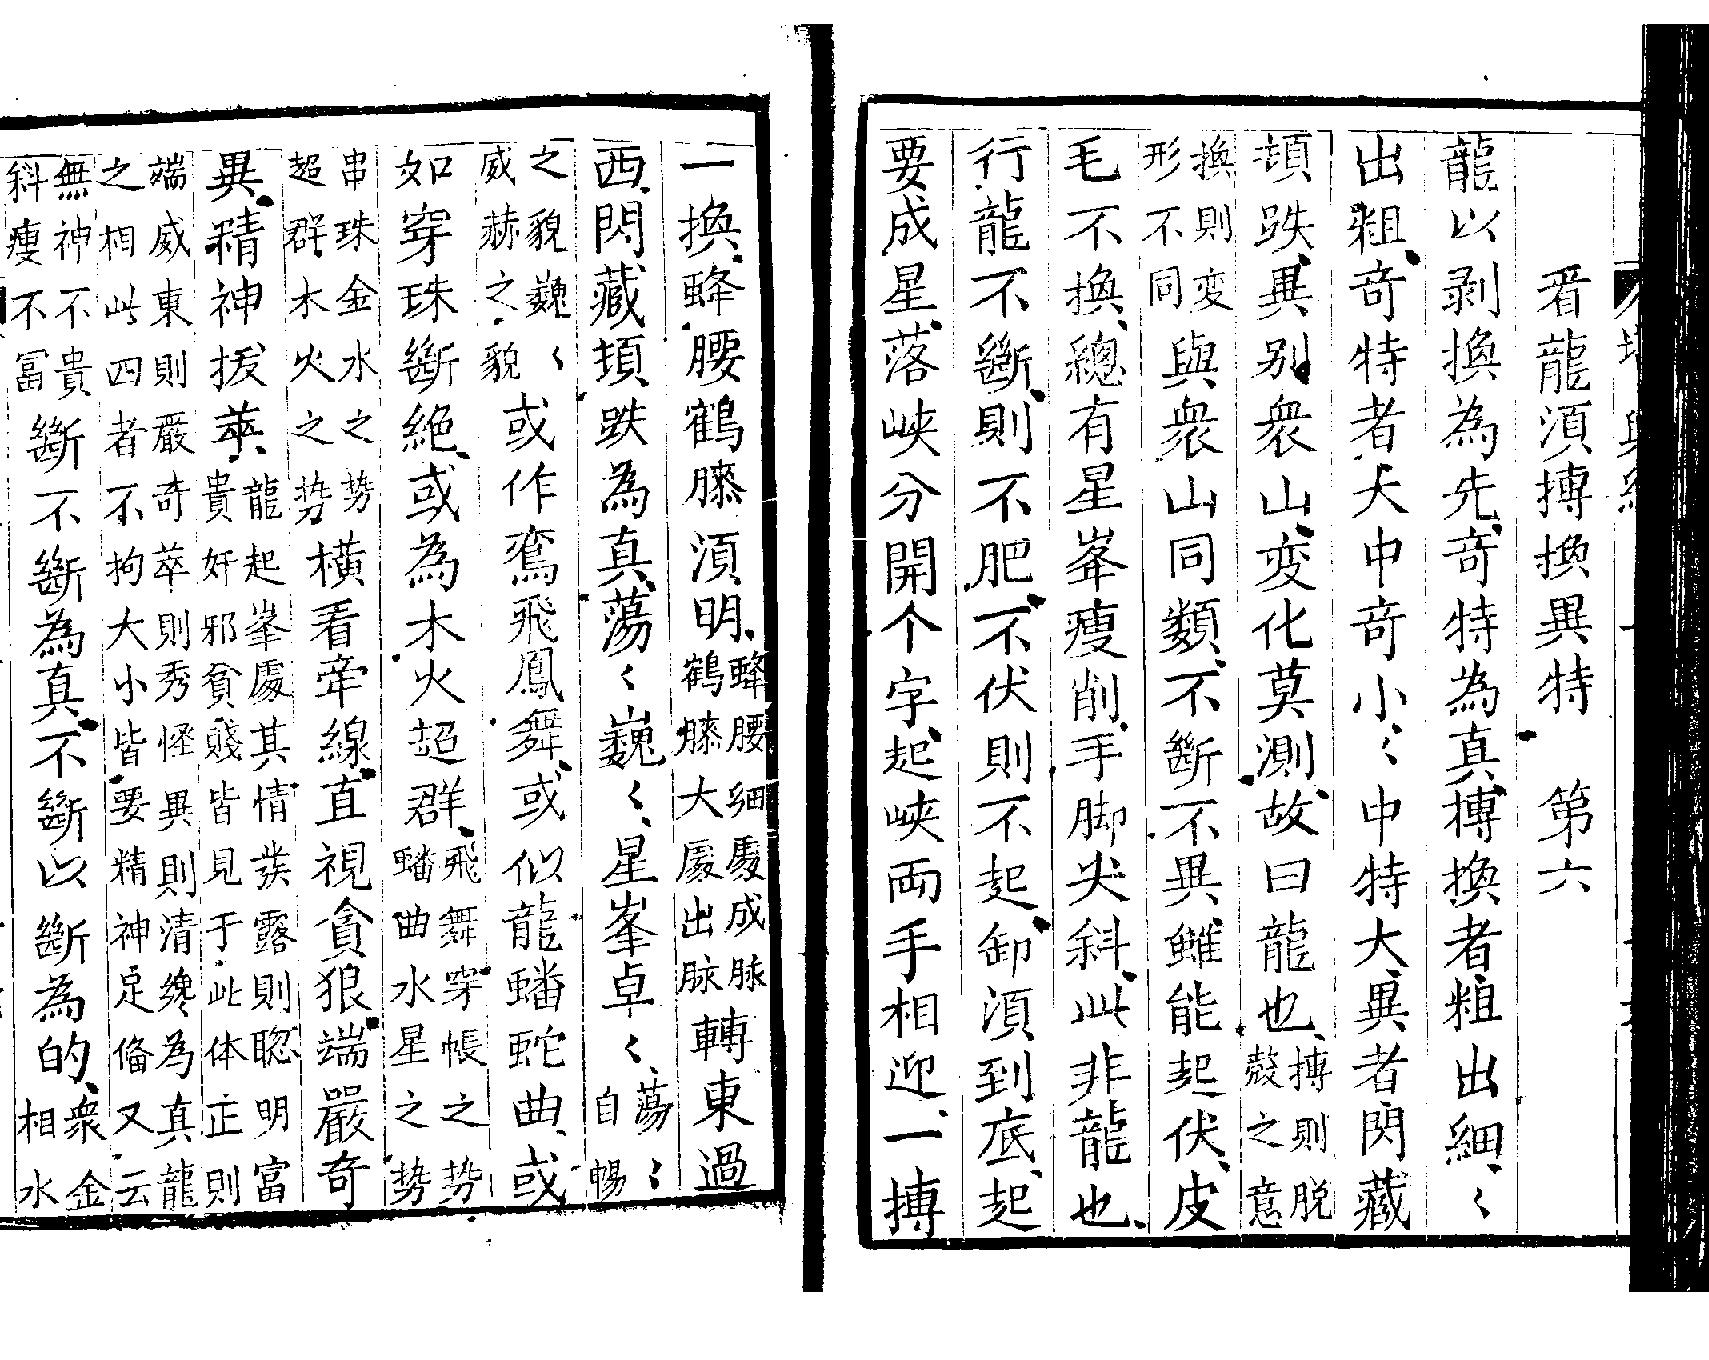 看龍湏搏換異特　第六
龍以剥換為先竒特為真搏換者粗出細〻
出粗竒特者大中竒小〻中特大異者閃藏
頓跌異别衆山変化莫測故曰龍也搏則脱
殻之意
換則変
形不同與衆山同類不斷不異雖能起伏皮
毛不換總有星峯瘦削手脚尖斜此非龍也
行龍不斷則不肥不伏則不起卸湏到底起
要成星落峽分開个字起峽両手相迎一搏
一換蜂腰鶴膝湏明蜂腰細䖏成脉
鶴膝大䖏出脉轉東過
西閃藏頓跌為真蕩〻巍〻星峯卓〻蕩〻
自暢
之貌巍〻
威赫之貌或作鸞飛鳳舞或似龍蟠蛇曲或
如穿珠斷絶或為木火超群飛舞穿帳之势
蟠曲水星之势
串珠金水之势
超群木火之势横看牽線直視貪狼端嚴竒
異精神拔萃龍起峯䖏其情發露則聡明富
貴奸邪貧賤皆見于此体正則
端威東則嚴竒萃則秀怪異則清纔為真龍
之相此四者不拘大小皆要精神足俻又云
無神不貴
斜瘦不冨斷不斷為真不斷以斷為的衆金
相水